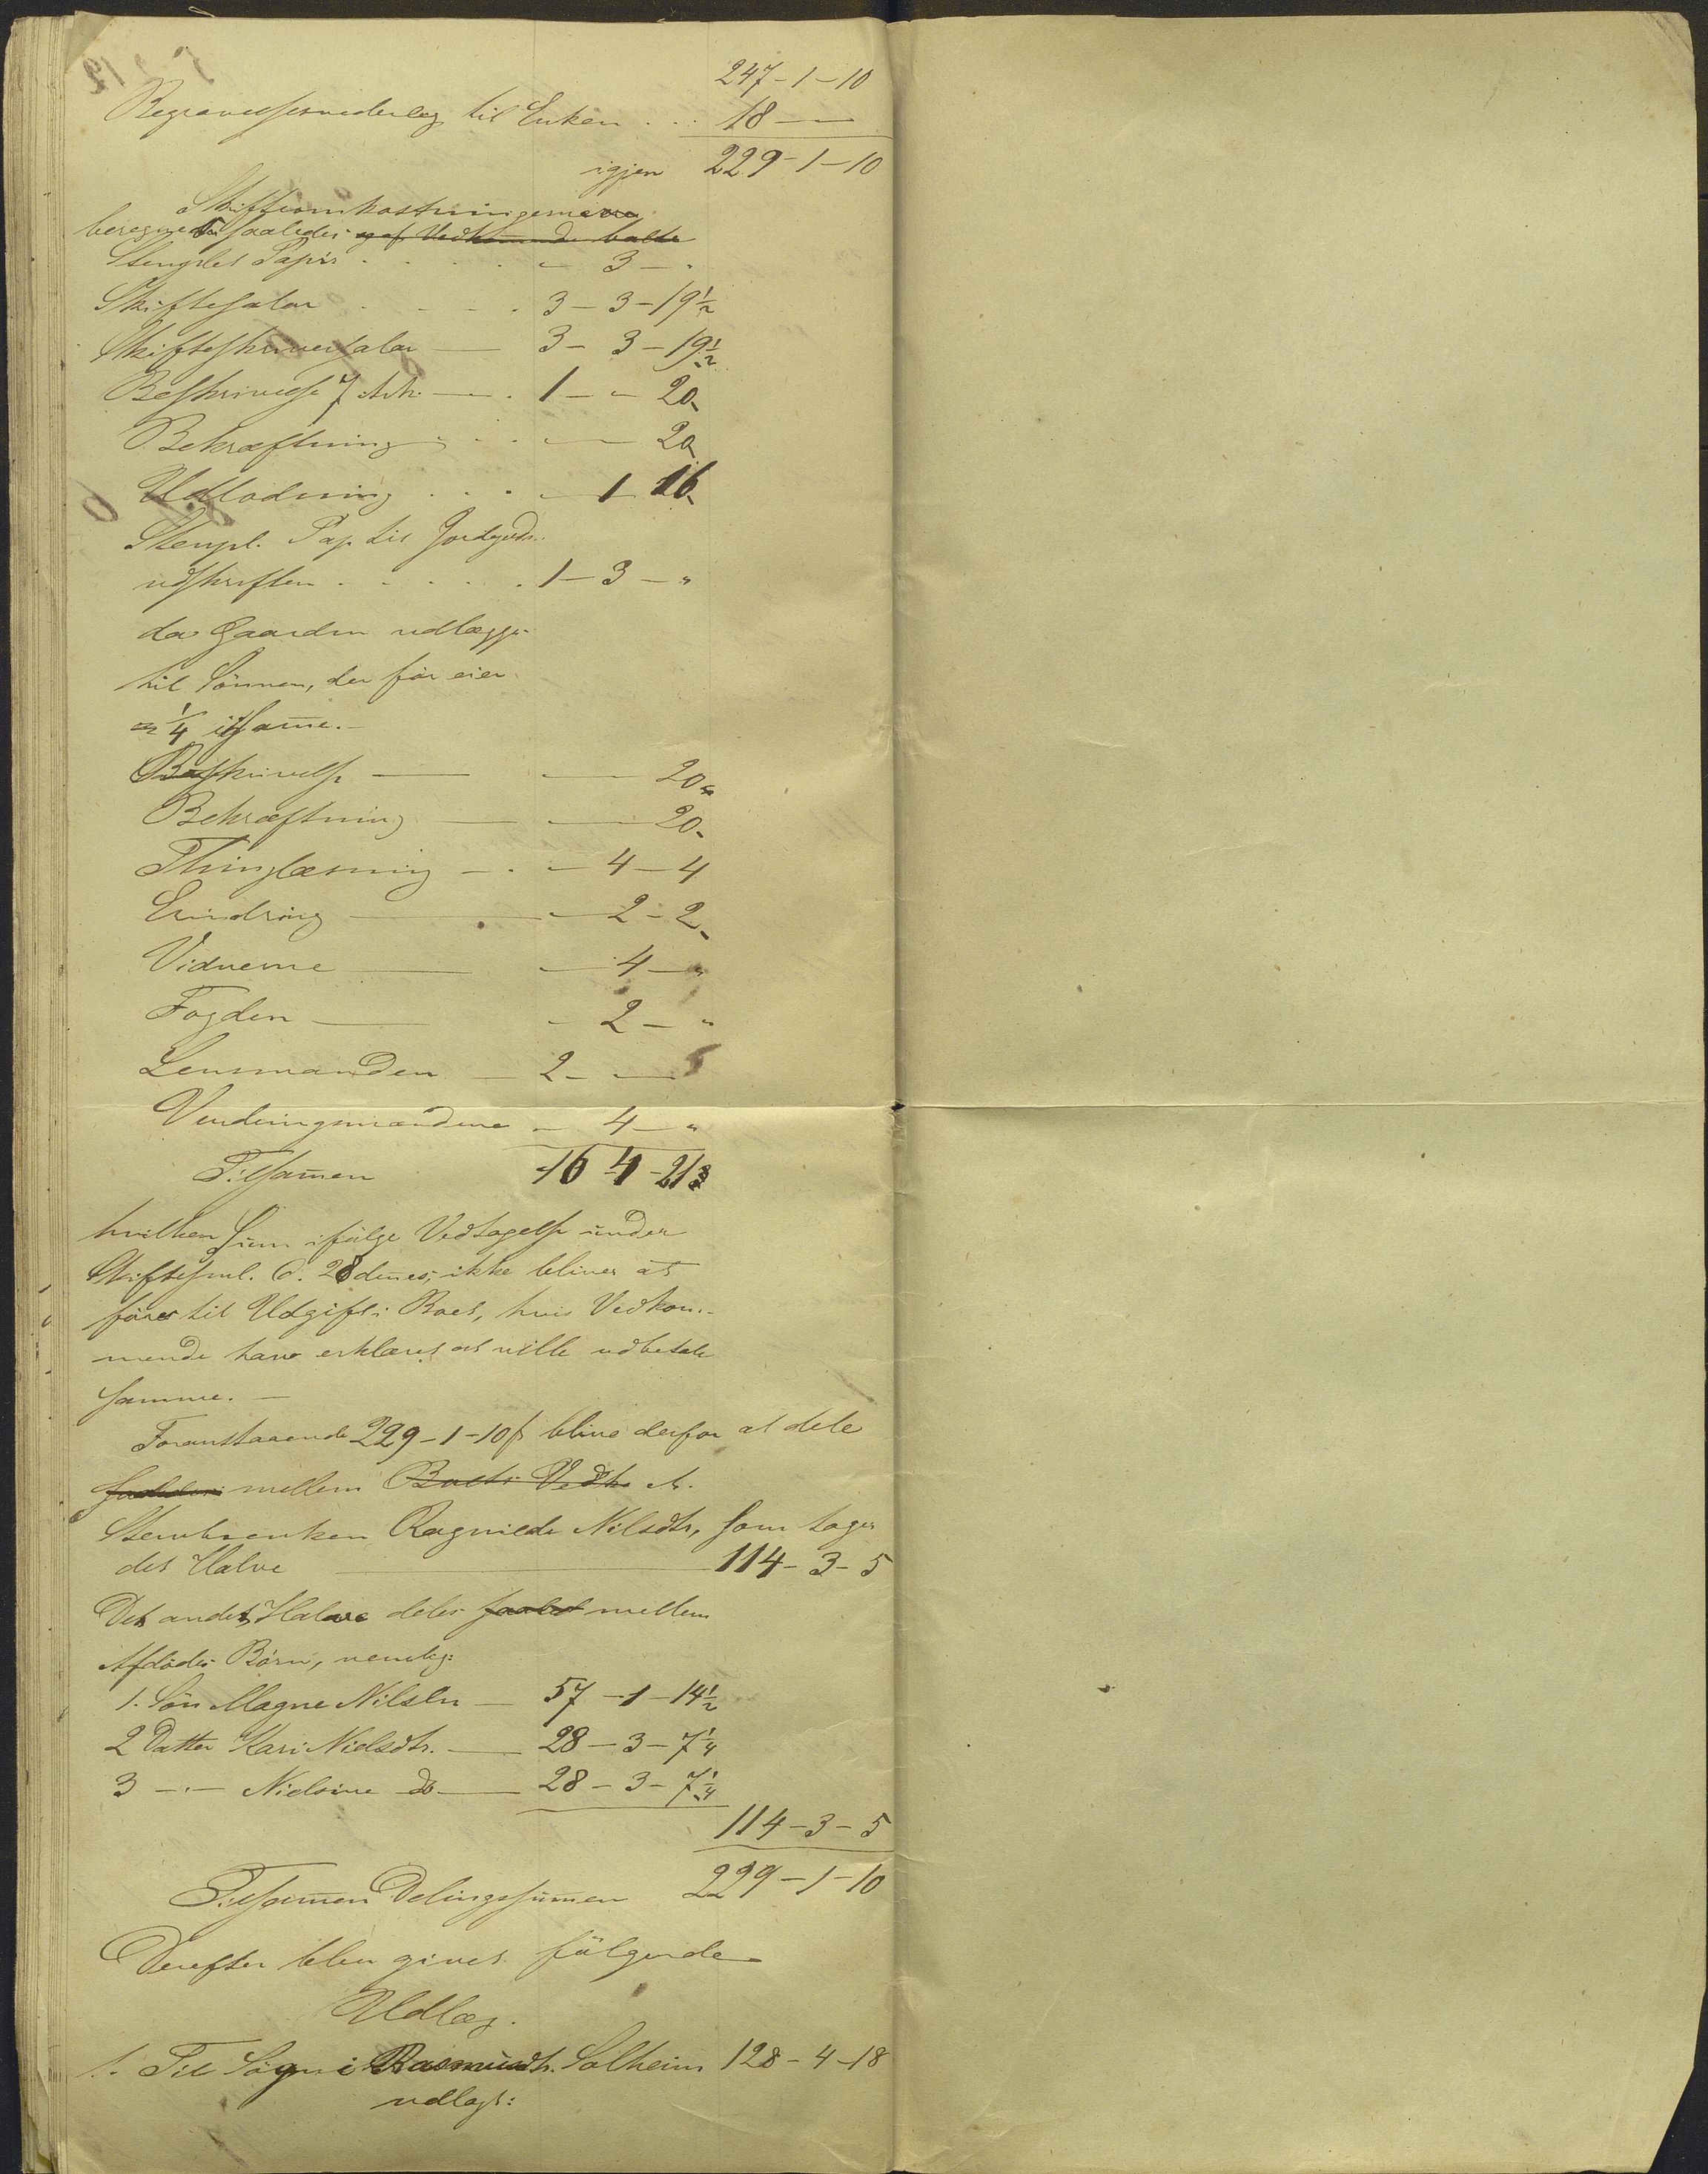 247-1-10
Begravelsesvederlag til Enken . . . 18 - -
igjen 229-1-10
Skifteomkostningerne
beregnes saaledes og af Vedkommende
Stemplet Papir . . . . - 3 - "
Skiftesalar . . . . 3 - 3 - 19½
Skifteskriversalar — 3 - 3 - 19½
Beskrivelse 7 Ark — . 1 - " 20
Bekræftning . . — 20
Udlodning . . . - 1 - 16
Stempl. Pap til Jordegods-
udskriften . . . . . 1 - 3 - "
da Gaarden udlægges
til Sønnen, der før eier
¼ i Same.-
Beskrivelse — — 20
Bekræftning — — 20-
Thinglæsning - . - 4 - 4
Erindring — - 2 - 2
Vidnerne — - 4 - "
Fogden — - 2 - "
Lensmanden - 2 - —
Vurderingsmændene - 4 - "
Tilsamen 16 4 - 21
hvilken Sum ifølge Vedtagelse under
Skiftesml. d. 28 dennes, ikke bliver at
føres til Udgift i Boet, hvis Vedkom-
mende have erklæret at ville udbetale
samme. -
Foranstaaende 229-1-10 ß blive derfor at dele
mellem Boets Vedk.
Stervboenken Ragnilde Nilsdtr, som tager
det Halve — 114-3-5
Det andet Halve deles mellem
Afdødes Børn, nemlig:
1. Søn Magne Nilsen — 57-1-14½
2 Datter Kari Nielsdtr. — 28-3-7¼
3 -"- Nielsine do — 28-3-7¼
114-3-5
229-1-10
Tilsamen Delingssummen
Derefter blev givet følgende
Udlæg.
1. Til Søgni Rasmusdtr. Solheim 128-4-18
udlagt: